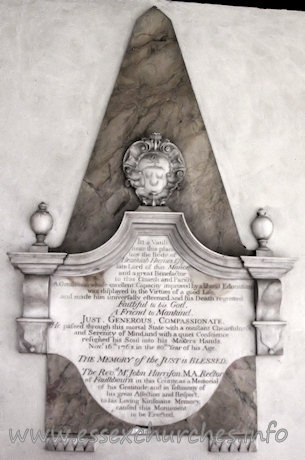 In a Vault
near this place
lies the Body of
late Lord of this Manor
and a great Benefactor
to this Church and Parish
A Gentleman whose excellent Capacity improved by a liberal Education
was display'd in the Virtues of a good Life
and made him universally esteemed and his Death regretted
Faithful to his God,
A Friend to Mankind,
JUST, GENEROUS, COMPASSIONATE.
He passed through this mortal State with a constant Chearfulness
and Serenity of Mind, and with a quiet Conscience
resigned his Soul into his Makers Hands
Nov. 16th 1761 in the 80th Year of his Age.
THE MEMORY OF THE JUST IS BLESSED.
The Revd. Mr. John Harrison M.A. Rector
of Faulkbourn in this County, as a Memorial
of his Gratitude, and in Testimony of
his great Affection and Respect,
to his Loving Kinsmans Memory,
caused this Monument
to be Erected.
www.essexchurches.info